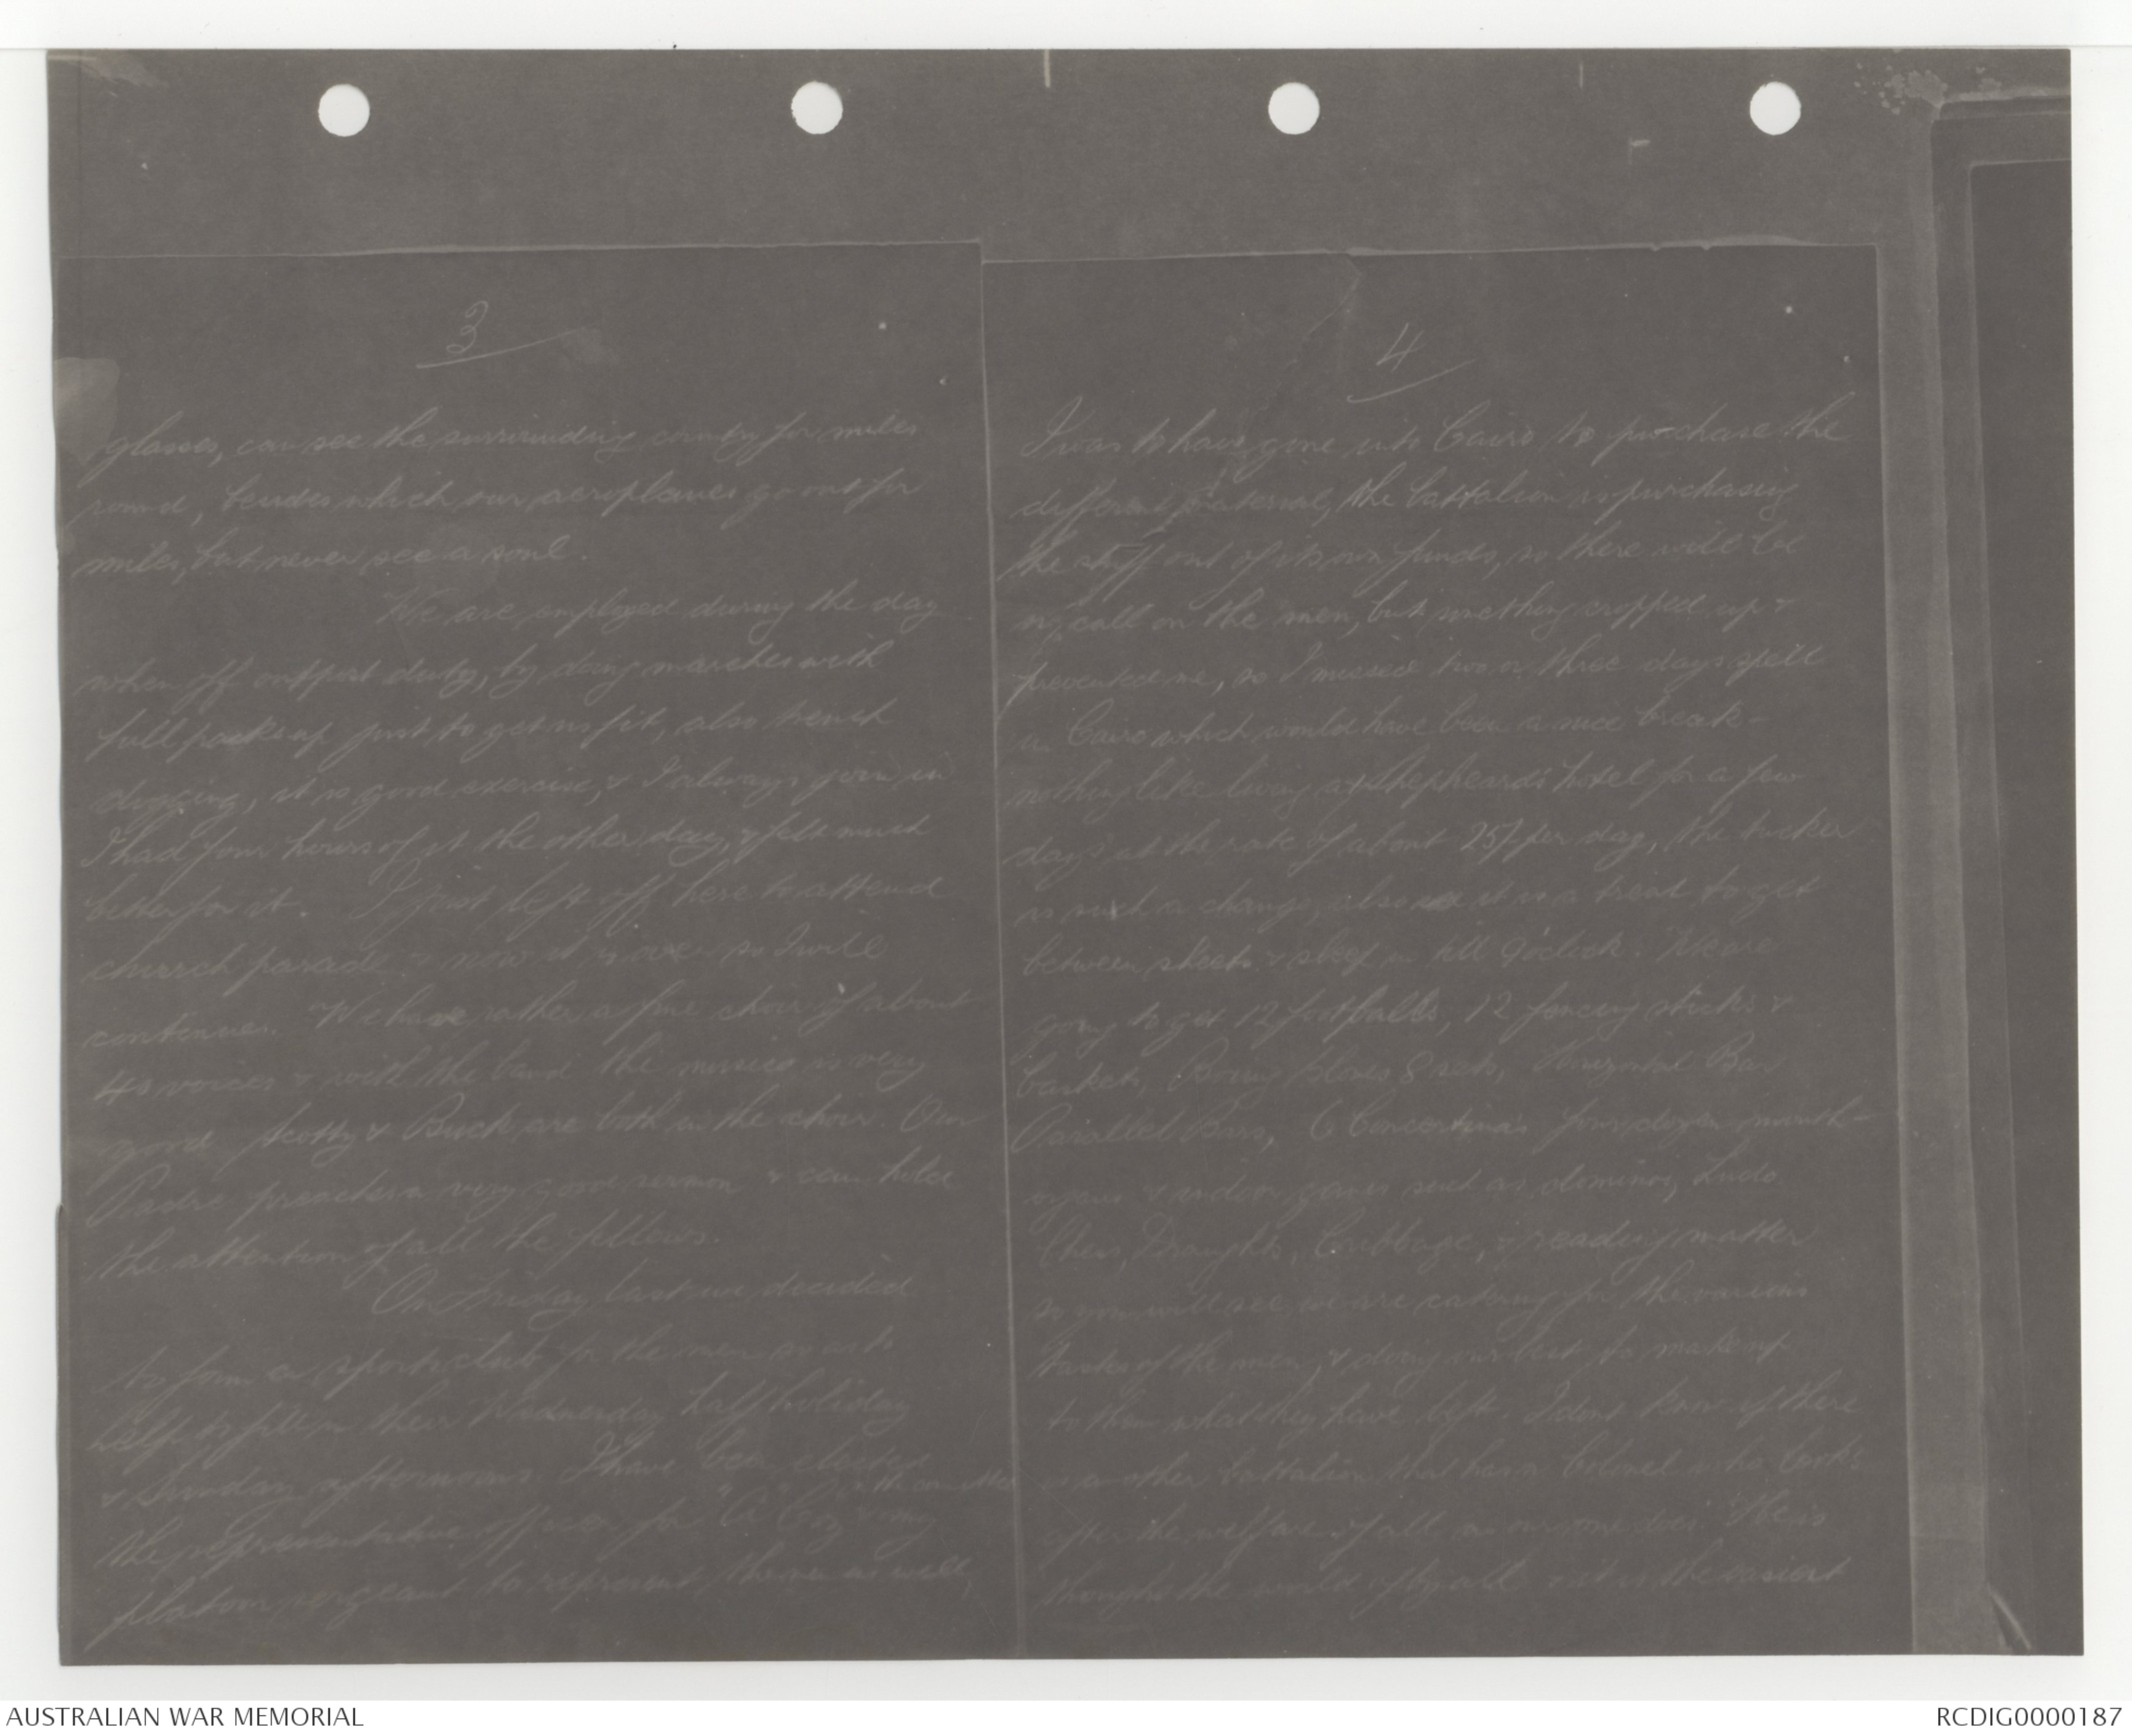 3
glasses, can see the surrounding country for miles
round, besides which our aeroplanes go out for
miles, but never see a soul.
We are employed during the day
when off outpost duty, by doing marches with
full packs up just to get us fit, also trench
digging, it is good exercise, & I always join in
I had four hours of it the other day, & felt much
better for it. I just left off here to attend
church parade & now it is over so I will
continue. We have rather a fine choir of about
40 voices & with the band the music is very
good Scotty & Buck are both in the choir. Our
Padre preaches a very good sermon & can hold
the attention of all the fellows.
On Friday last we decided
to form a sports club for the men so as to
help to fill in their Wednesday half holiday
& Sunday afternoons I have been elected
on the committee
the representative officer for A Coy & my
platoon sergeant to represent the men as well,
4
I was to have gone into Cairo to purchase the
different material, the battalion is purchasing
the stuff out of its own funds, so there will be
no call on the men, but something cropped up &
prevented me, so I missed two or three days spell
in Cairo which would have been a nice break -
nothing like living at Shepheards hotel for a few
days at the rate of about 25/ per day, the tucker
is such a change, also it is a treat to get
between sheets & sleep in till 9 oclock. We are
going to get 12 footballs, 12 fencing sticks &
baskets, Boxing gloves 8 sets, Horizontal Bar
Parallel Bars, 6 Concertinas four dozen mouth-
organs & indoor games such as dominoes, Ludo
Chess, Draughts, Cribbage, & reading matter
so you will see we are catering for the various
tastes of the men, & doing our best to make up
to them what they have left. I dont know if there
is another battalion that has a Colonel who looks
after the welfare of all as our one does He is
thought the world of by all & it is the easiest